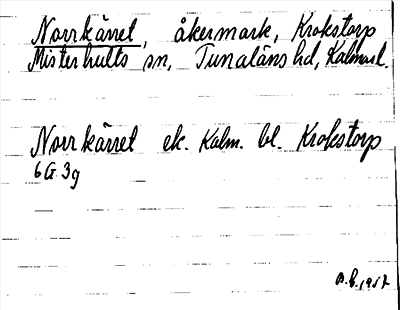 Norrkärret, åkermark, Krokstorp
Misterhults sn, Tunaläns hd, Kalmar l.
Norrkärret ek. Kalm. bl. Krokstorp
6G 3g
1957